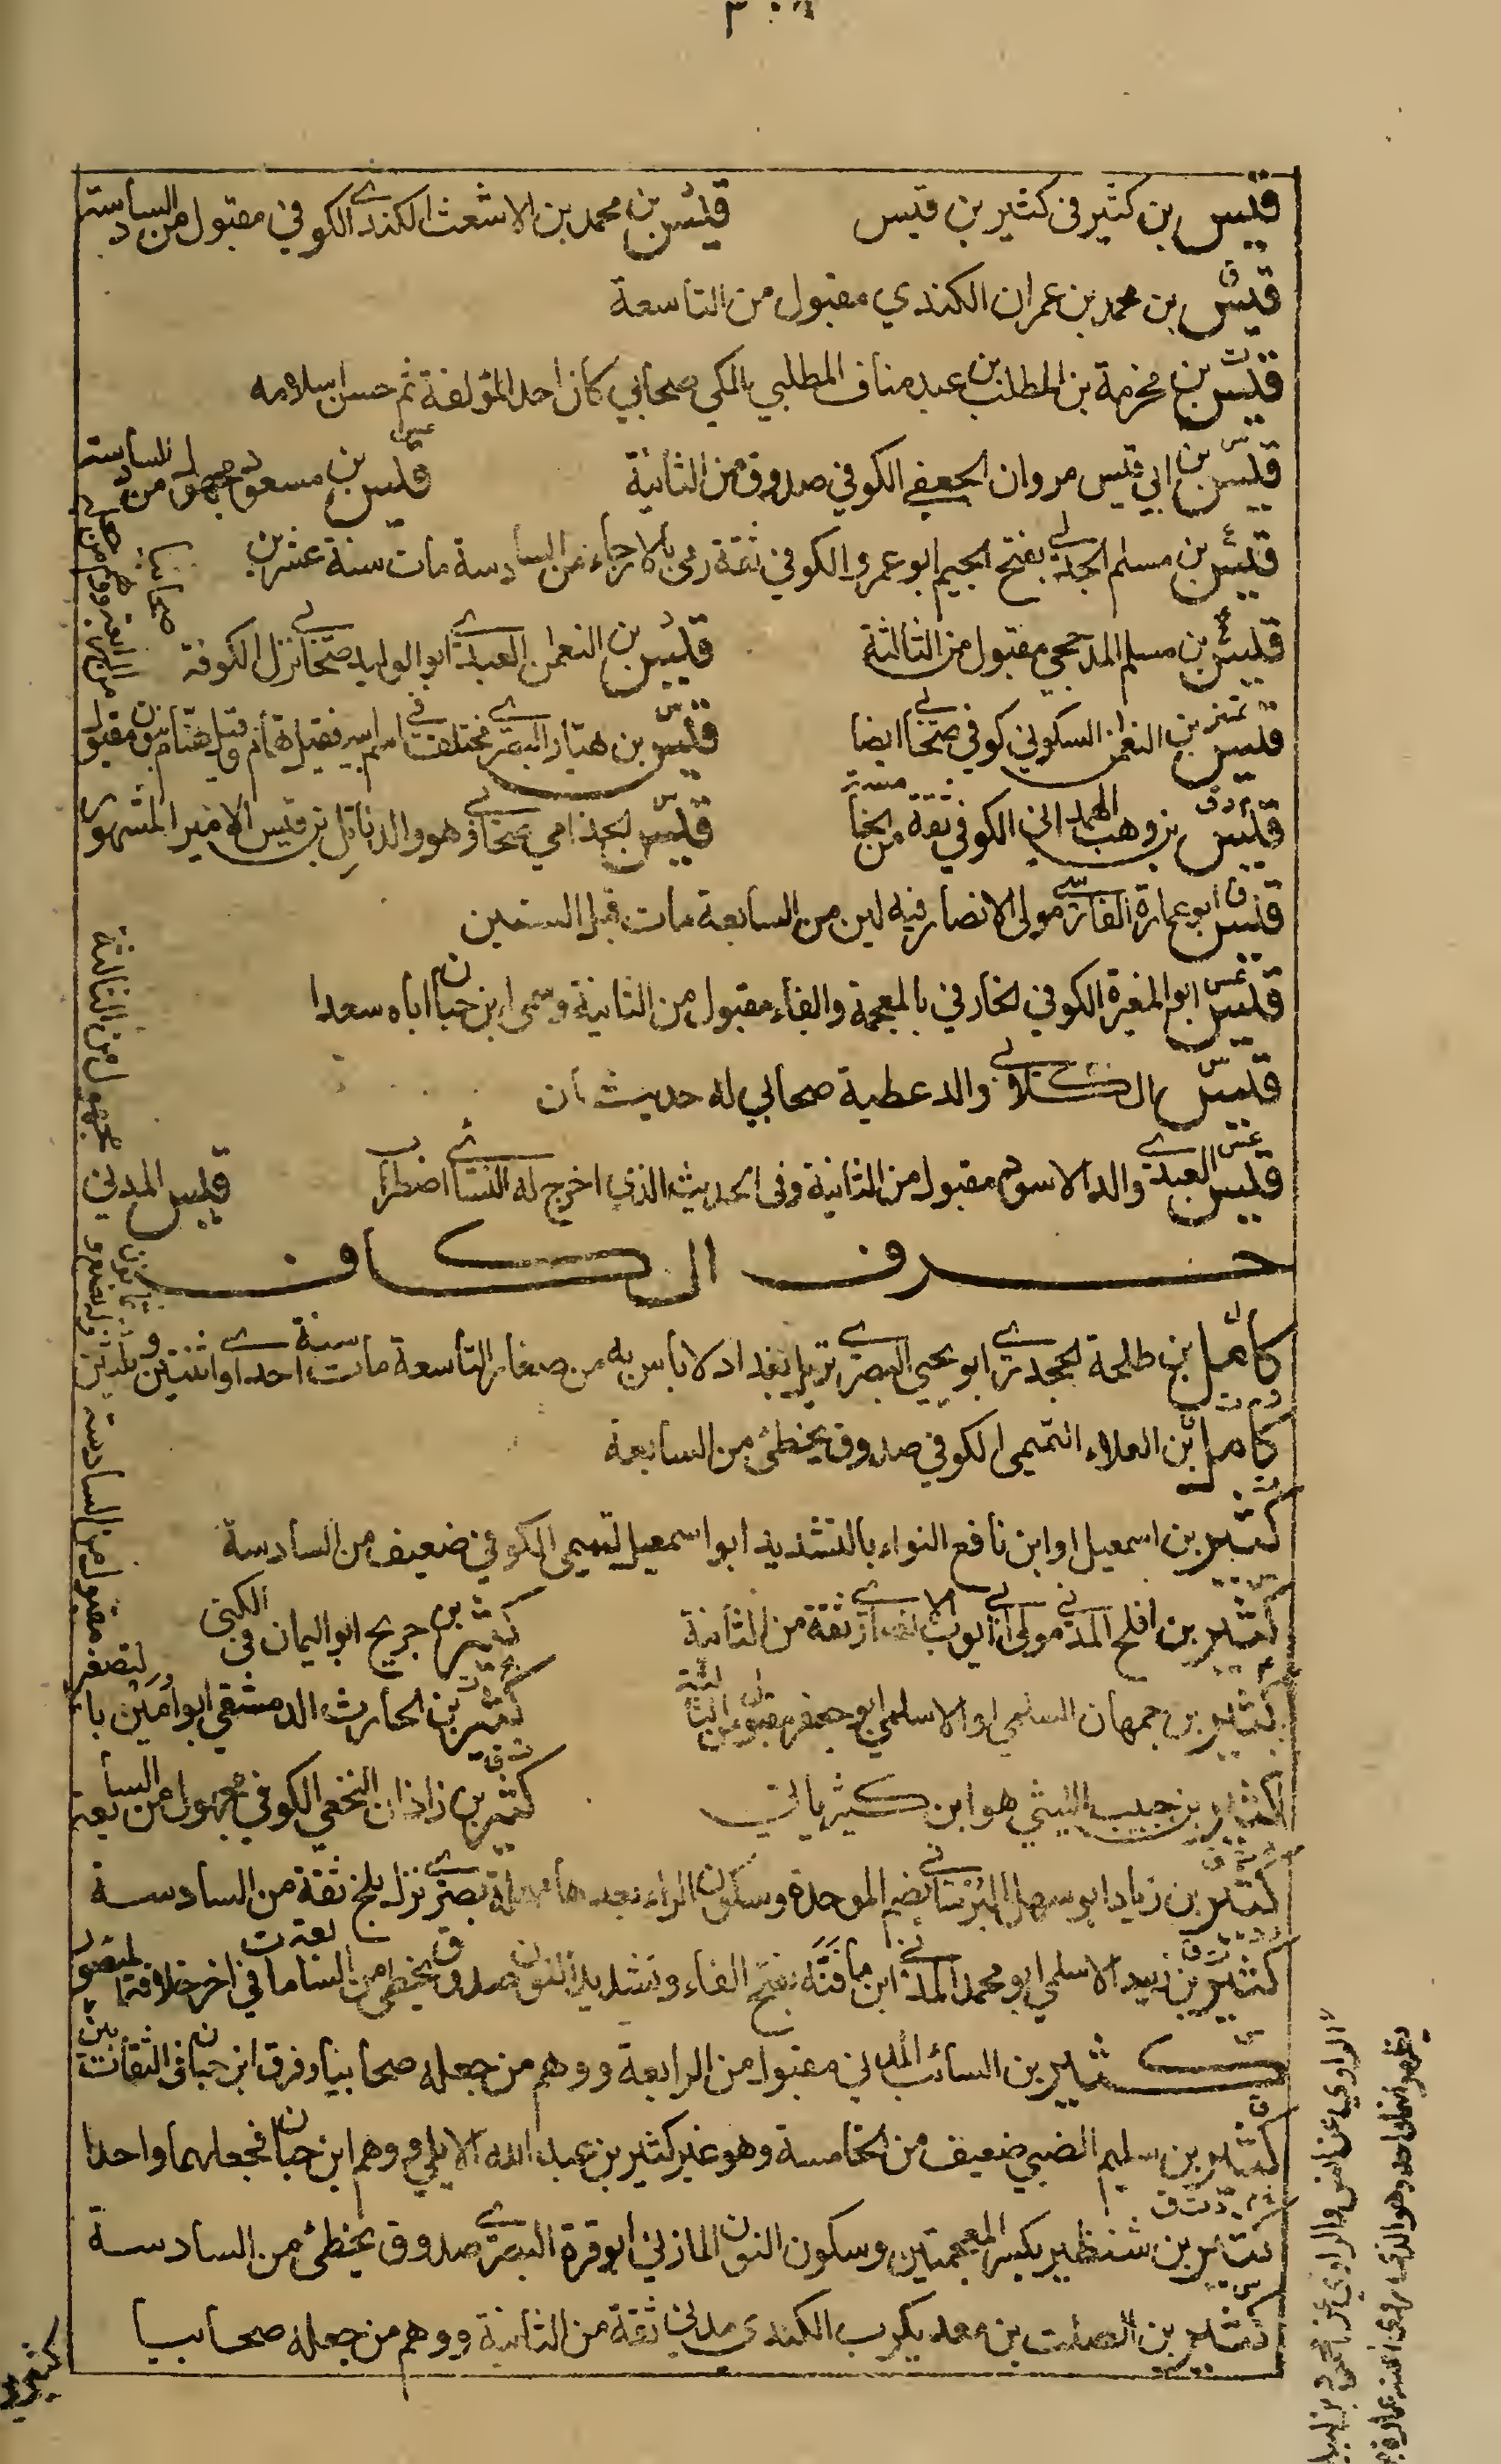 قيس بن كثير في كثير بن قيس قيس بن محمد بن الاشعث الكندي الكوفي مقبول من السادسة
قيس بن محمد بن عمران الكندي مقبول من التاسعة
قيس بن مخرمة بن المطلب بن عبد مناف المطلبي المكي صحابي كان احد المؤلفة ثم حسن اسلامه
قيس بن ابي قيس مروان الجعفي الكوفي صدوق من الثانية قيس بن مسعود مجهول من السادسة
قيس بن مسلم الجدلي بفتح الجيم ابو عمرو الكوفي ثقة رمي بالارجاء من السادسة مات سنة عشرين
قيس بن مسلم المذحجي مقبول من الثالثة قيس بن النعمن العبدي ابو الوليد صحابي نزل الكوفة
قيس بن النعمن السكوني كوفي صحابي ايضا قيس بن هبار البصري مختلف في اسم ابيه فقيل همام وقيل هنام مقبول
قيس بن وهب الهمداني الكوفي ثقة من الخامسة قيس الجذامي صحابي وهو والد ناتل بن قيس الامير المشهور
قيس ابو عمارة الفارسي مولى الانصار فيه لين من السابعة مات قبل الستين
قيس ابو المغيرة الكوفي الخارفي بالمعجمة والفاء مقبول من الثانية وسمى ابن حبان اباه سعدا
قيس الكلابي والد عطية صحابي له حديثان
قيس العبدي والد الاسود مقبول من الثانية وفي الحديث الذي اخرج له النسائي اضطراب قيس المدني
مجهول من الثالثة
حرف الكاف
كامل بن طلحة الجحدري ابو يحيى البصري نزيل بغداد لا باس به من صغار التاسعة مات سنة احدى او اثنتين وثلثين
كامل بن العلاء التميمي الكوفي صدوق يخطئ من السابعة
كثير بن اسمعيل او ابن نافع النواء بالتشديد ابو اسمعيل التيمي الكوفي ضعيف من السادسة
كثير بن افلح المدني مولى ابي ايوب الانصاري ثقة من الثانية كثير بن جريج ابو اليمان في الكنى
كثير بن جمهان السلمي او الاسلمي ابو جعفر مقبول من الثالثة كثير بن الحارث الدمشقي ابو امين بالتصغير
مقبول من السادسة
كثير بن حبيب الليثي هو ابن كثير ياتي كثير بن زاذان النخعي الكوفي مجهول من السابعة
كثير بن زياد ابو سهل البرساني بضم الموحدة وسكون الراء بعدها مهملة بصري نزل بلخ ثقة من السادسة
كثير بن زيد الاسلمي ابو محمد المدني ابن مافنه بفتح الفاء وتشديد النون صدوق يخطئ من السابعة مات في اخر خلافة المنصور
كثير بن السائب المدني مقبول من الرابعة ووهم من جعله صحابيا وفرق ابن حبان في الثقات بين
كثير بن سليم الضبي ضعيف من الخامسة وهو غير كثير بن عبد الله الايلي ووهم ابن حبان فجعلهما واحدا
كثير بن شنظير بكسر المعجمتين وسكون النون المازني ابو قرة البصري صدوق يخطئ من السادسة
كثير بن الصلت بن معديكرب الكندي مدني ثقة من الثانية ووهم من جعله صحابيا